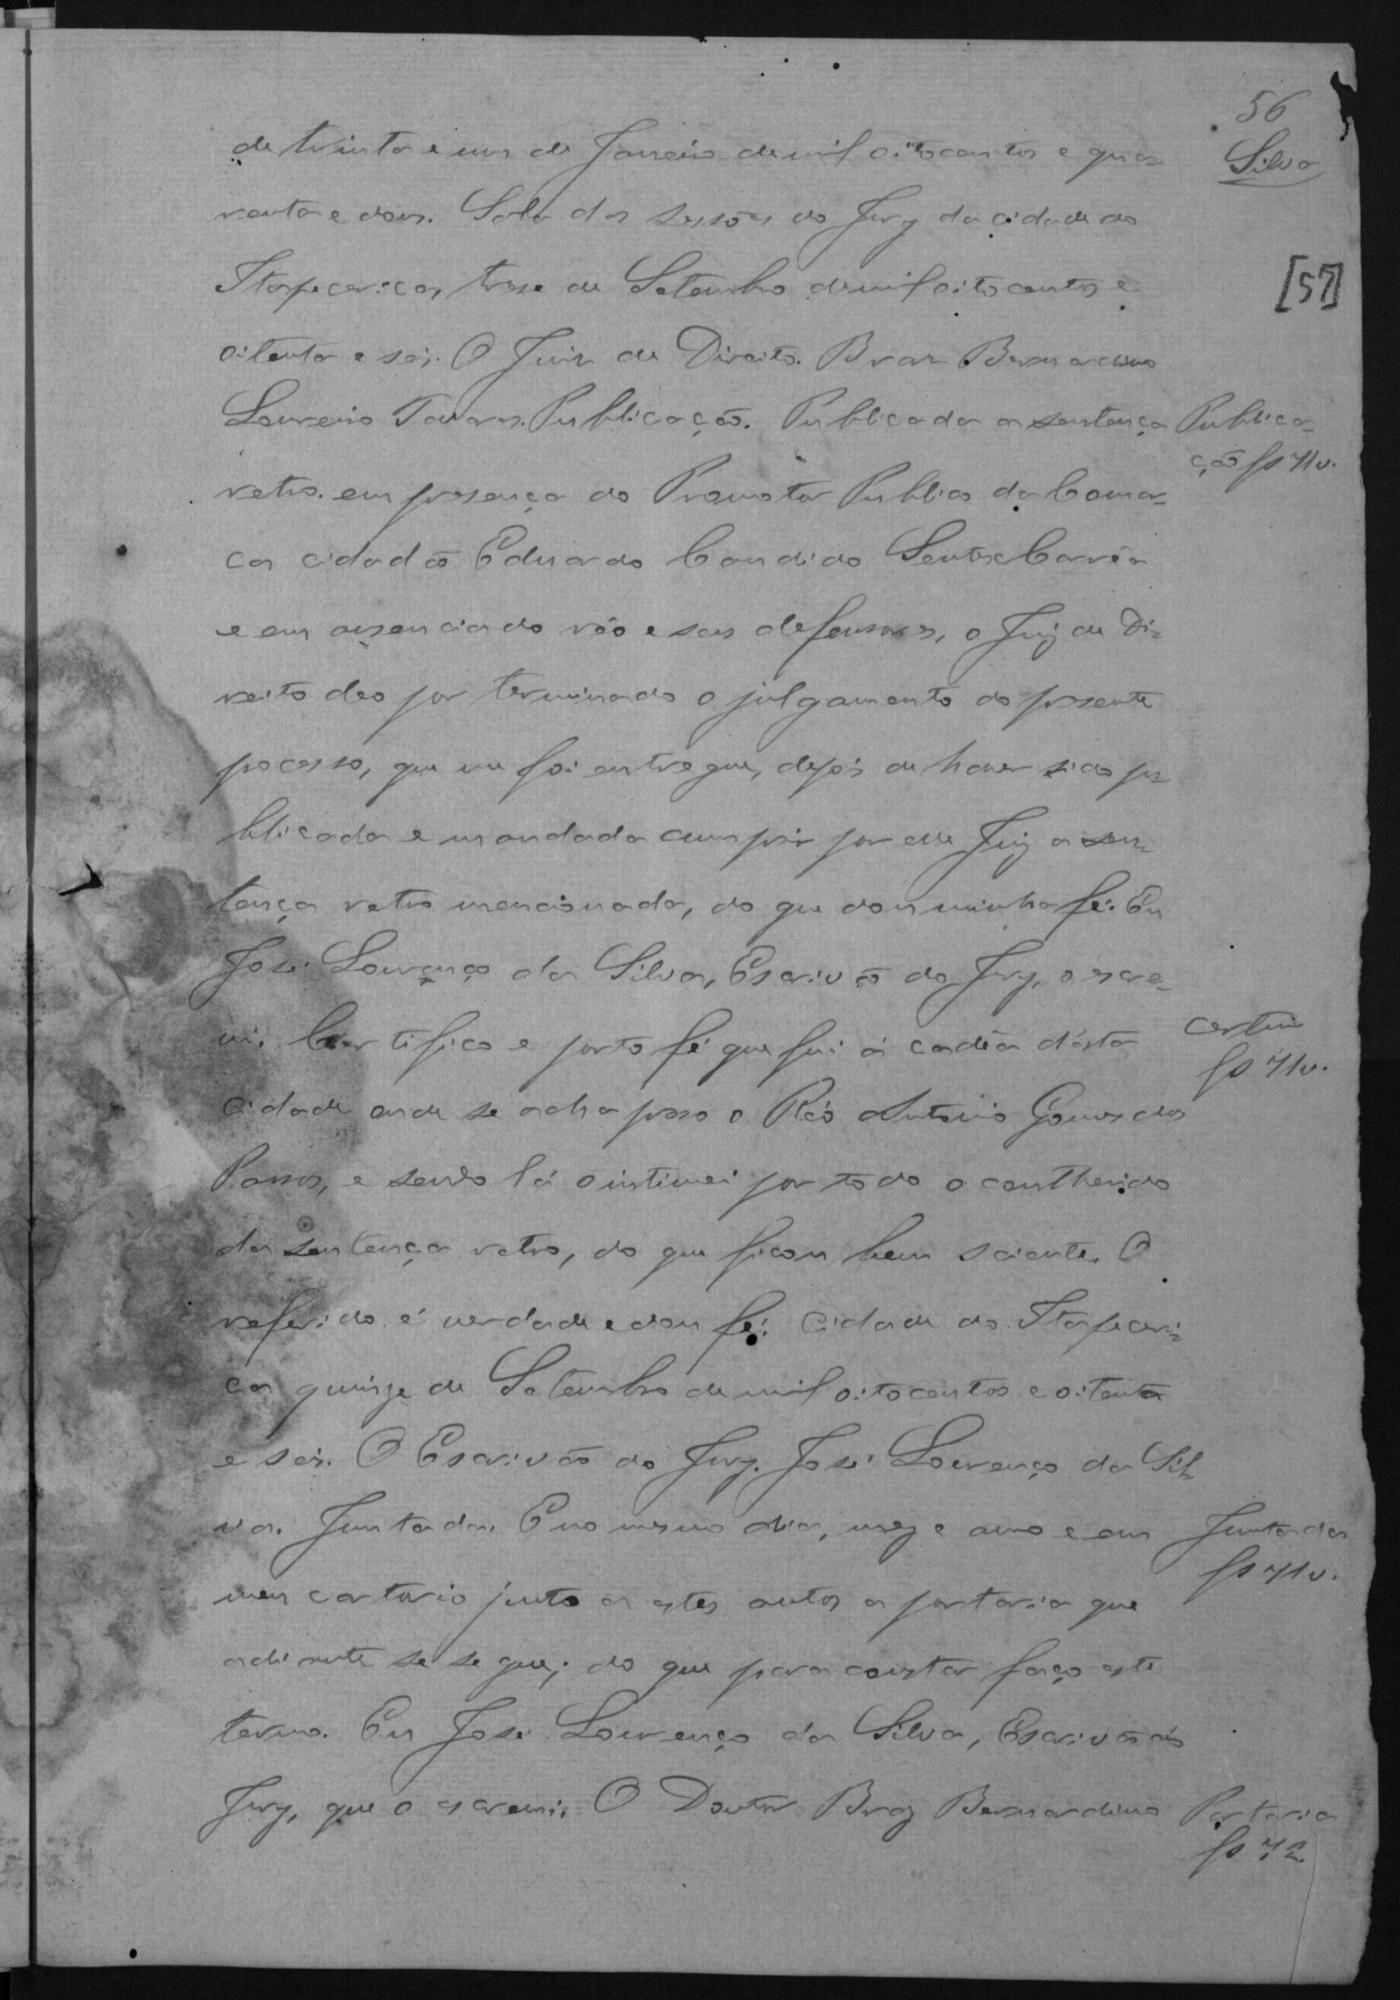 56
Silva
[57]
de trinta e um de Janeiro de mil oitocentos e qua-
renta e dous. Sala das sessões do Jury da cidade do
Itapecerica, trese de Setembro de mil oitocentos e
oitenta e seis. O Juiz de Direito. Braz Bernardino
Loureiro Tavares. Publicação. Publicada a sentença
Publica-
ção fs 71v.
retro. em presença do Promotor Publico da Comar-
ca cidadão Eduardo Candido Corrêa
e em ausencia do réo e seus defensores, o Juiz de Di-
reito deo por terminado o julgamento do presente
pocesso, que me foi entregue, depois de haver sido pu-
blicada e mandada cumprir por elle Juiz a sen-
tença retro mencionada, do que dou minha fé. Eu
José Lourenço da Silva, Escrivão do Jury, o escre-
vi. Certifico e porto fé que fui á cadêa d'ésta
certim
fs 71v.
cidade onde se acha preso o Réo Antonio Gomes dos
Passos, e sendo lá o intimei por todo o conthendo
da sentença retro, do que ficou bem sciente. O
referido é verdade e dou fé. Cidade do Itapeceri-
ca quinze de Setembro de mil oitocentos e oitenta
e seis. O Escrivão do Jury. José Lourenço da Sil-
va. Juntada. E no mesmo dia, mez e anno e em
Juntada
fs 71v.
meu cartorio junto a estes autos a portaria que
adiante se segue; do que para constar faço este
termo. Eu José Lourenço da Silva, Escrivão do
Jury, que o escrevi. O Doutor Braz Bernardino
Portaria
fs 72